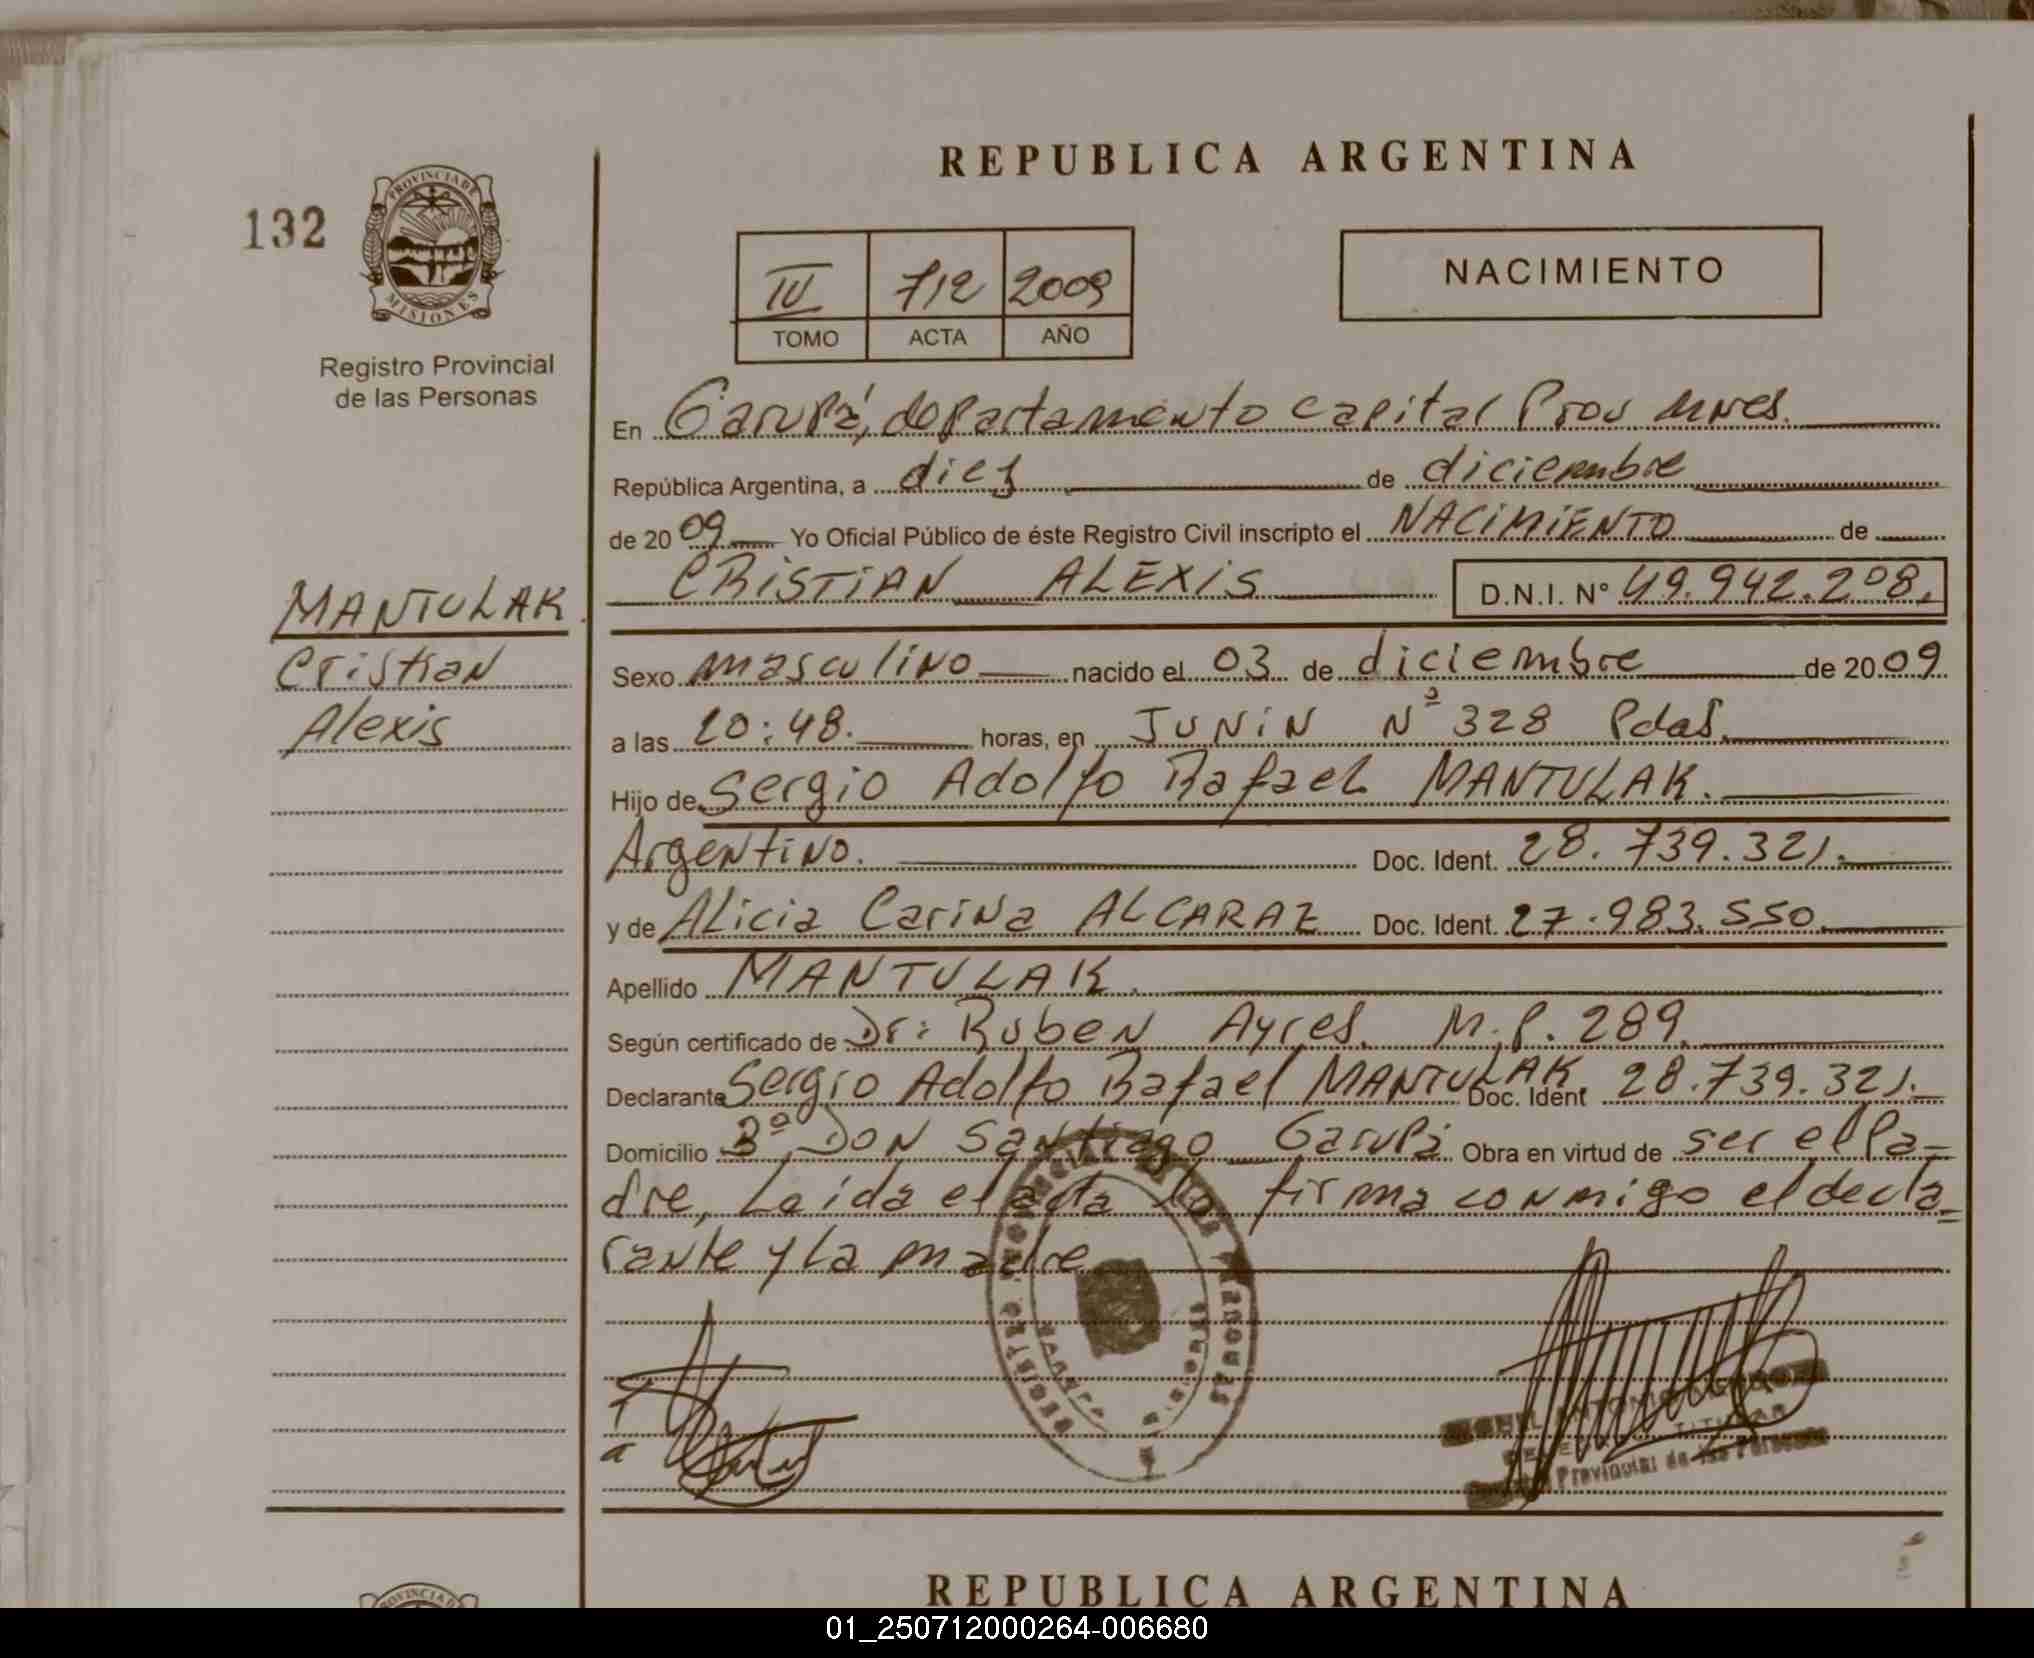 REPUBLICA ARGENTINA
132
PROVINCIA DE
MISIONES
Registro Provincial
de las Personas
IV 712 2009
TOMO ACTA AÑO
NACIMIENTO
En Garupá, departamento capital Prov Mnes.
República Argentina, a diez de diciembre
de 20 09 Yo Oficial Público de éste Registro Civil inscripto el NACIMIENTO de
CRISTIAN ALEXIS D.N.I. Nº 49.942.208.
MANTULAK
Cristian
Alexis
Sexo masculino nacido el 03 de diciembre de 20 09
a las 20:48. horas, en JUNIN Nº 328 Pdas.
Hijo de Sergio Adolfo Rafael MANTULAK.
Argentino. Doc. Ident. 28.739.321.
y de Alicia Carina ALCARAZ Doc. Ident. 27.983.550.
Apellido MANTULAK.
Según certificado de Dr: Ruben Ayres. M.P. 289.
Declarante Sergio Adolfo Rafael MANTULAK. Doc. Ident 28.739.321.
Domicilio Bº Don Santiago Garupá Obra en virtud de ser el Pa-
dre, Leida el acta la firma conmigo el decla-
rante y la madre
Provincial de las Personas
REPUBLICA ARGENTINA
PROVINCIA DE
01_250712000264-006680